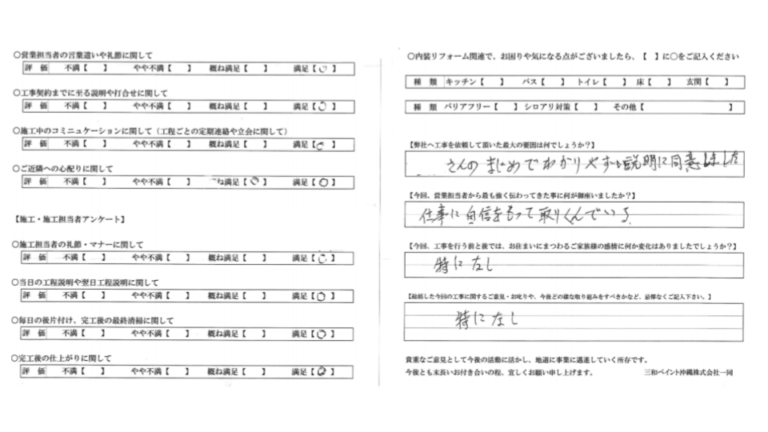 ○営業担当者の言葉遣いや礼節に関して
評 価 不満【 】 やや不満【 】 概ね満足【 】 満足【○】
○工事契約までに至る説明や打合せに関して
評 価 不満【 】 やや不満【 】 概ね満足【 】 満足【○】
○施工中のコミュニケーションに関して（工程ごとの定期連絡や立会に関して）
評 価 不満【 】 やや不満【 】 概ね満足【 】 満足【○】
○ご近隣への心配りに関して
評 価 不満【 】 やや不満【 】 概ね満足【○】 満足【○】
【施工・施工担当者アンケート】
○施工担当者の礼節・マナーに関して
評 価 不満【 】 やや不満【 】 概ね満足【 】 満足【○】
○当日の工程説明や翌日工程説明に関して
評 価 不満【 】 やや不満【 】 概ね満足【 】 満足【○】
○毎日の後片付け、完工後の最終清掃に関して
評 価 不満【 】 やや不満【 】 概ね満足【 】 満足【○】
○完工後の仕上がりに関して
評 価 不満【 】 やや不満【 】 概ね満足【 】 満足【○】
○内装リフォーム関連で、お困りや気になる点がございましたら、【 】に○をご記入ください
種 類 キッチン【 】 バス【 】 トイレ【 】 床【 】 玄関【 】
種 類 バリアフリー【 】 シロアリ対策【 】 その他【 】
【弊社へ工事を依頼して頂いた最大の要因は何でしょうか？】
さんの まじめで わかりやすい説明に同意しました
【今回、営業担当者から最も強く伝わってきた事に何が御座いましたか？】
仕事に自信をもって取りくんでいる
【今回、工事を行う前と後では、お住まいにまつわるご家族様の感情に何か変化はありましたでしょうか？】
特になし
【総括した今回の工事に関するご意見・お叱りや、今後どの様な取り組みをすべきかなど、忌憚なくご記入下さい。】
特になし
貴重なご意見として今後の活動に活かし、地道に事業に邁進していく所存です。
今後とも末長いお付き合いの程、宜しくお願い申し上げます。 三和ペイント沖縄株式会社一同